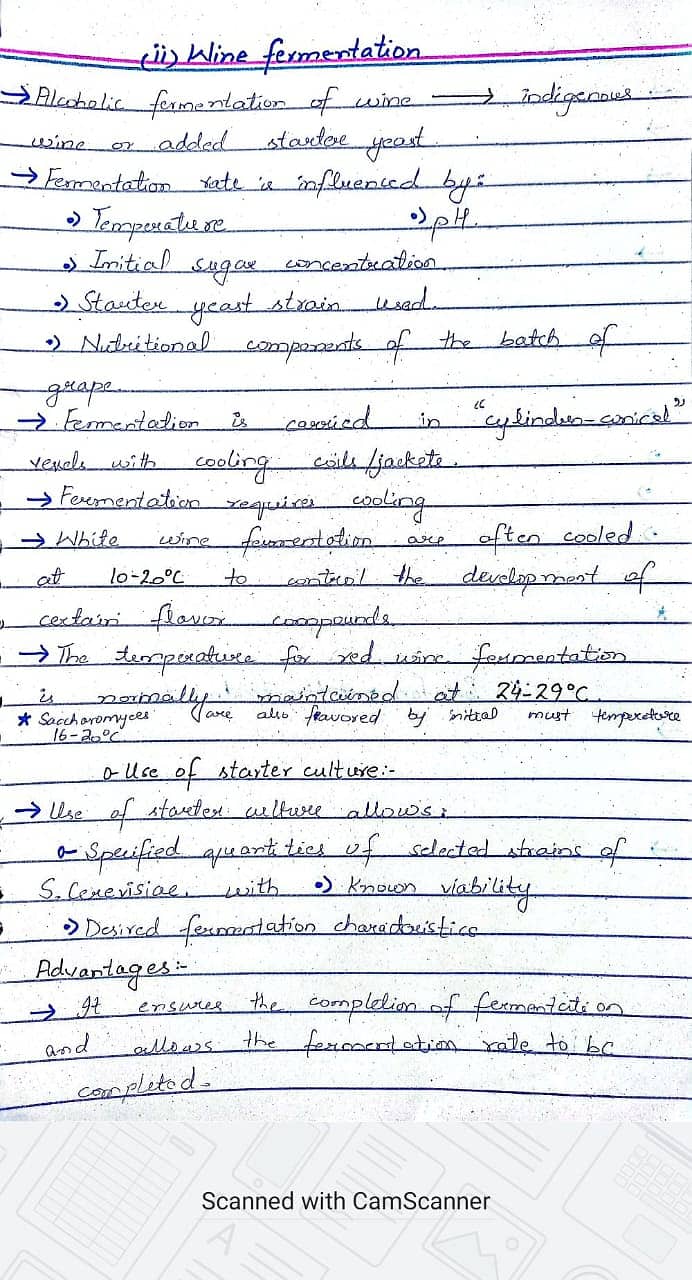 (ii) Wine fermentation
→ Alcoholic fermentation of wine ⟶ indigenous
wine or added startere yeast.
→ Fermentation rate is influenced by:
•) Temperature •) pH.
•) Initial sugar concentration
•) Starter yeast strain used.
•) Nutritional components of the batch of
grape.
→ Fermentation is carried in "cylinder-conical"
vessels with cooling coils/jackets.
→ Fermentation requires cooling
→ White wine fermentation are often cooled
at 10-20°C to control the development of
certain flavor compounds.
→ The temperature for red wine fermentation
is normally maintained at 24-29°C.
* Saccharomyces are also flavored by initial must temperature
16-20°C
o- Use of starter culture:-
→ Use of starter culture allows:
o- Specified quantities of selected strains of
S. Cerevisiae, with •) Known viability
•) Desired fermentation characteristics
Advantages:-
→ It ensures the completion of fermentation
and allows the fermentation rate to be
completed.
Scanned with CamScanner